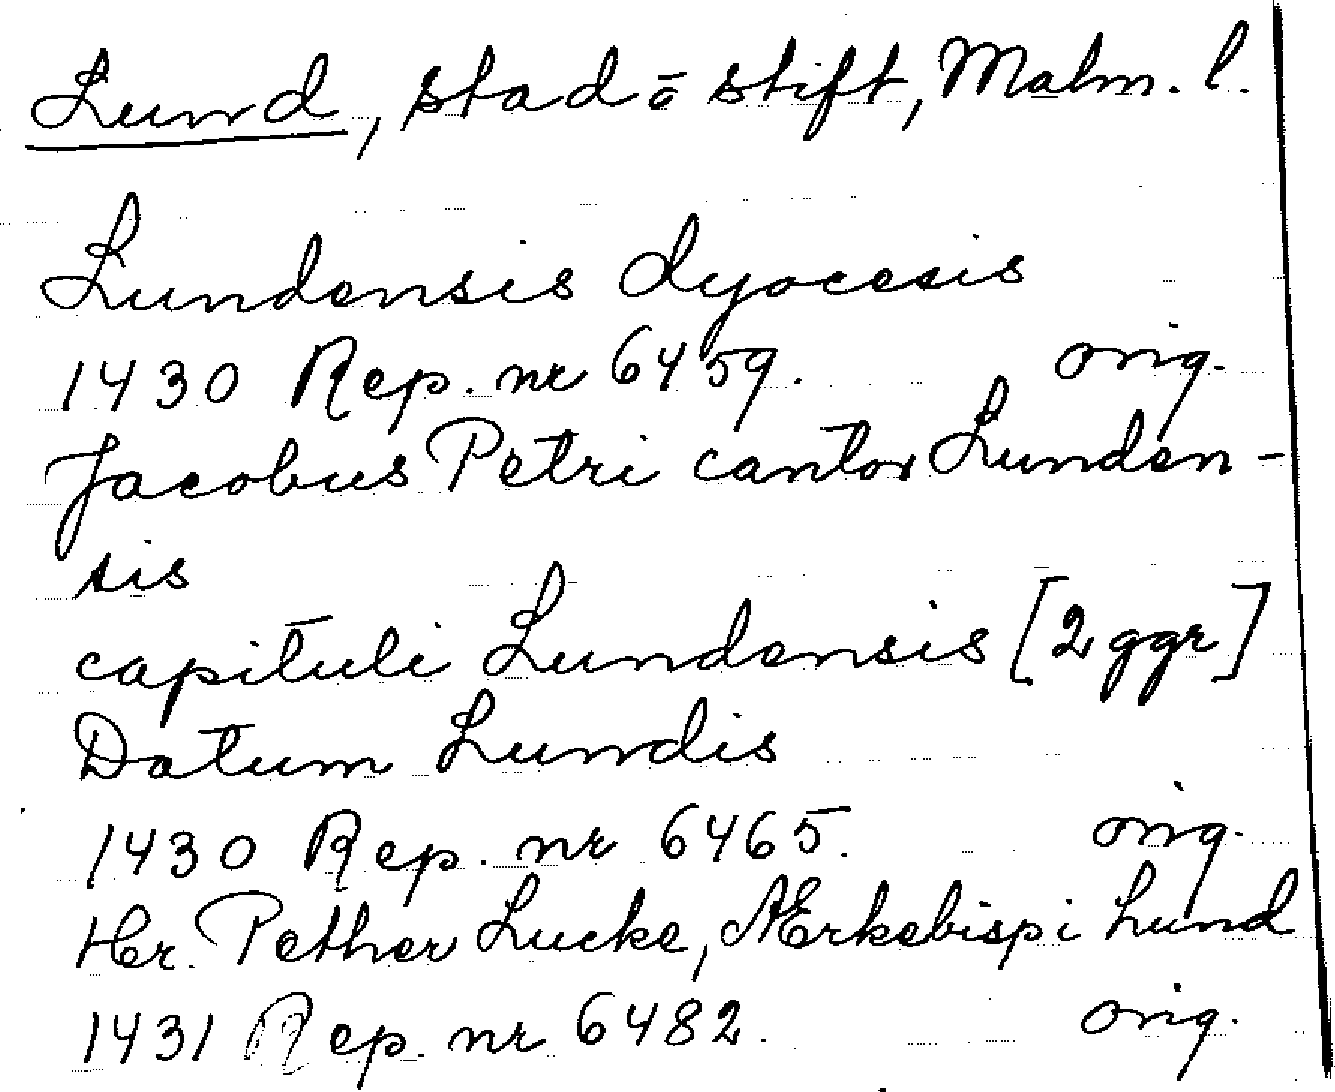 Lund, stad o stift, Malm. l.
Lundensis dyocesis
1430 Rep. nr 6459. orig.
Jacobus Petri cantor Lunden-
sis
capituli Lundensis [2 ggr]
Datum Lundis
1430 Rep. nr 6465. orig.
Hr. Pether Lucke, Ærkebisp i Lund
1431 Rep. nr 6482. orig.